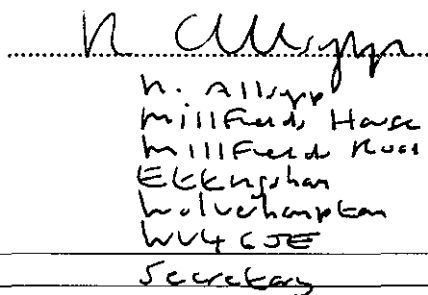 N. Allsopp
N. Allsopp
Millfields House
Millfields Road
Ettingshall
Wolverhampton
WV4 6JE
Secretary